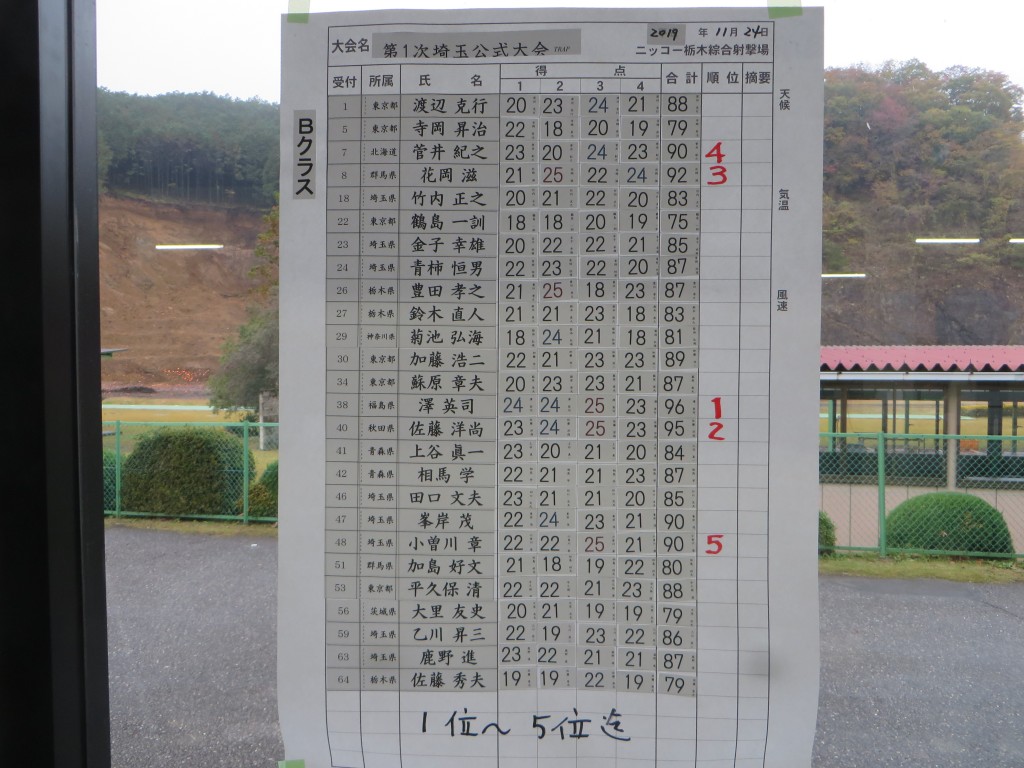 大会名 第1次埼玉公式大会 TRAP 2019 年 11月 24日
ニッコー栃木綜合射撃場
Bクラス
受付 所属 氏 名 得 点 合計 順位 摘要
1 2 3 4
1 東京都 渡辺 克行 20 23 24 21 88
5 東京都 寺岡 昇治 22 18 20 19 79
7 北海道 菅井 紀之 23 20 24 23 90 4
8 群馬県 花岡 滋 21 25 22 24 92 3
18 埼玉県 竹内 正之 20 21 22 20 83
22 東京都 鶴島 一訓 18 18 20 19 75
23 埼玉県 金子 幸雄 20 22 22 21 85
24 埼玉県 青柿 恒男 22 23 22 20 87
26 栃木県 豊田 孝之 21 25 18 23 87
27 栃木県 鈴木 直人 21 21 23 18 83
29 神奈川県 菊池 弘海 18 24 21 18 81
30 東京都 加藤 浩二 22 21 23 23 89
34 東京都 蘇原 章夫 20 23 23 21 87
38 福島県 澤 英司 24 24 25 23 96 1
40 秋田県 佐藤 洋尚 23 24 25 23 95 2
41 青森県 上谷 眞一 23 20 21 20 84
42 青森県 相馬 学 22 21 21 23 87
46 埼玉県 田口 文夫 23 21 21 20 85
47 埼玉県 峯岸 茂 22 24 23 21 90
48 埼玉県 小曽川 章 22 22 25 21 90 5
51 群馬県 加島 好文 21 18 19 22 80
53 東京都 平久保 清 22 22 21 23 88
56 茨城県 大里 友史 20 21 19 19 79
59 埼玉県 乙川 昇三 22 19 23 22 86
63 埼玉県 鹿野 進 23 22 21 21 87
64 栃木県 佐藤 秀夫 19 19 22 19 79
1位〜5位迄
天候
気温
風速